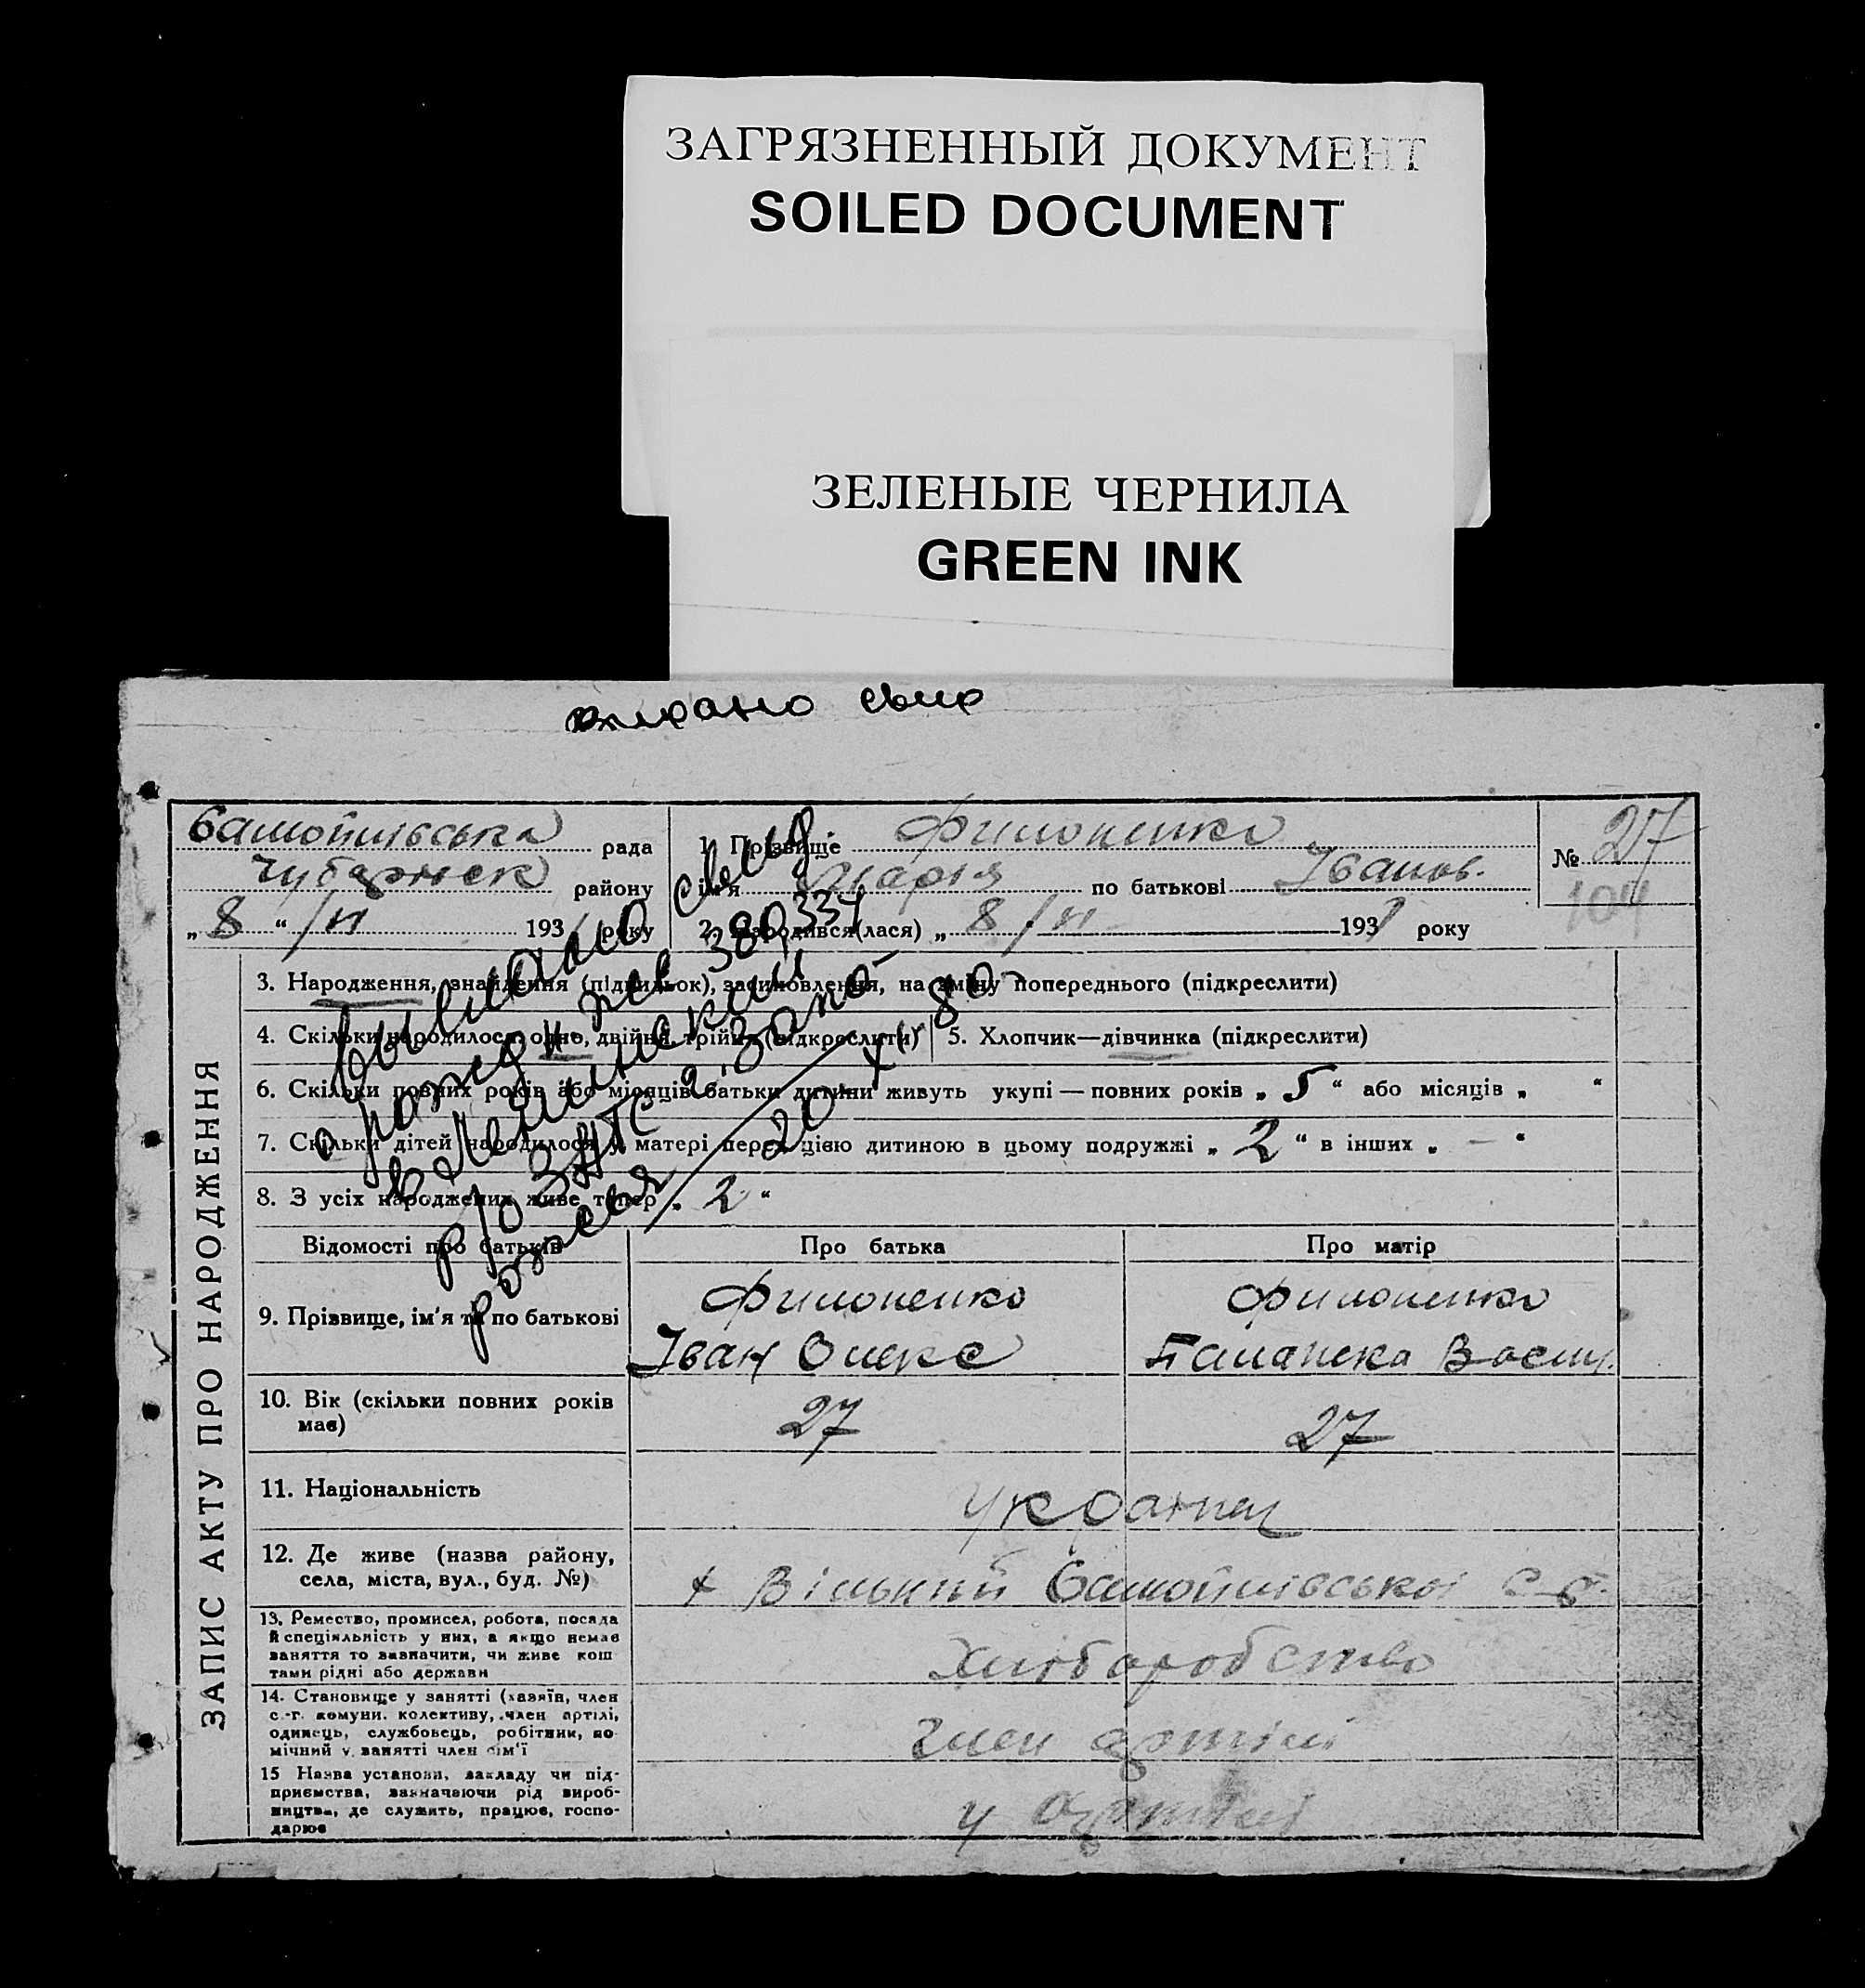 ЗАГРЯЗНЕННЫЙ ДОКУМЕНТ
SOILED DOCUMENT
ЗЕЛЕНЫЕ ЧЕРНИЛА
GREEN INK
Самойлівська рада
Чубарівск району
„ 8 “ / VI 1931 року
1. Прізвище Филоненко
ім'я Марія по батькові Іванов.
2. Народився(лася) „ 8 / VI 1931 року
№ 27
104
Выписано свид
о рожден. ЖБ № 380334
в Ленинским
р/о ЗАГС г. Запо-
рожья 20 XII 80
ЗАПИС АКТУ ПРО НАРОДЖЕННЯ
3. Народження, знайдення (підкидьок), засиновлення, на зміну попереднього (підкреслити)
4. Скільки народилося: одно, двійня, трійня (підкреслити)
5. Хлопчик—дівчинка (підкреслити)
6. Скільки повних років або місяців батьки дитини живуть укупі — повних років „ 5 “ або місяців „ “
7. Скільки дітей народилося у матері перед цією дитиною в цьому подружжі „ 2 “ в інших „ — “
8. З усіх народжених живе тепер „ 2 “
Відомості про батьків Про батька Про матір
9. Прізвище, ім'я та по батькові
Филоненко
Іван Олекс
Филоненко
Палажка Васил.
10. Вік (скільки повних років
має)
27 27
11. Національність
українц
12. Де живе (назва району,
села, міста, вул., буд. №)
х Вільний Самойлівської с-р.
13. Ремество, промисел, робота, посада
й спеціяльність у них, а якщо немає
заняття то зазначити, чи живе кош
тами рідні або держави
Хліборобство
14. Становище у занятті (хазяїн, член
с.-г. комуни. колективу, член артілі,
одинець, службовець, робітник, по-
мічний у занятті член сім'ї
член артілі
15 Назва установи, закладу чи під-
приємства, зазначаючи рід вироб-
ництва, де служить, працює, госпо-
дарює
у артілі